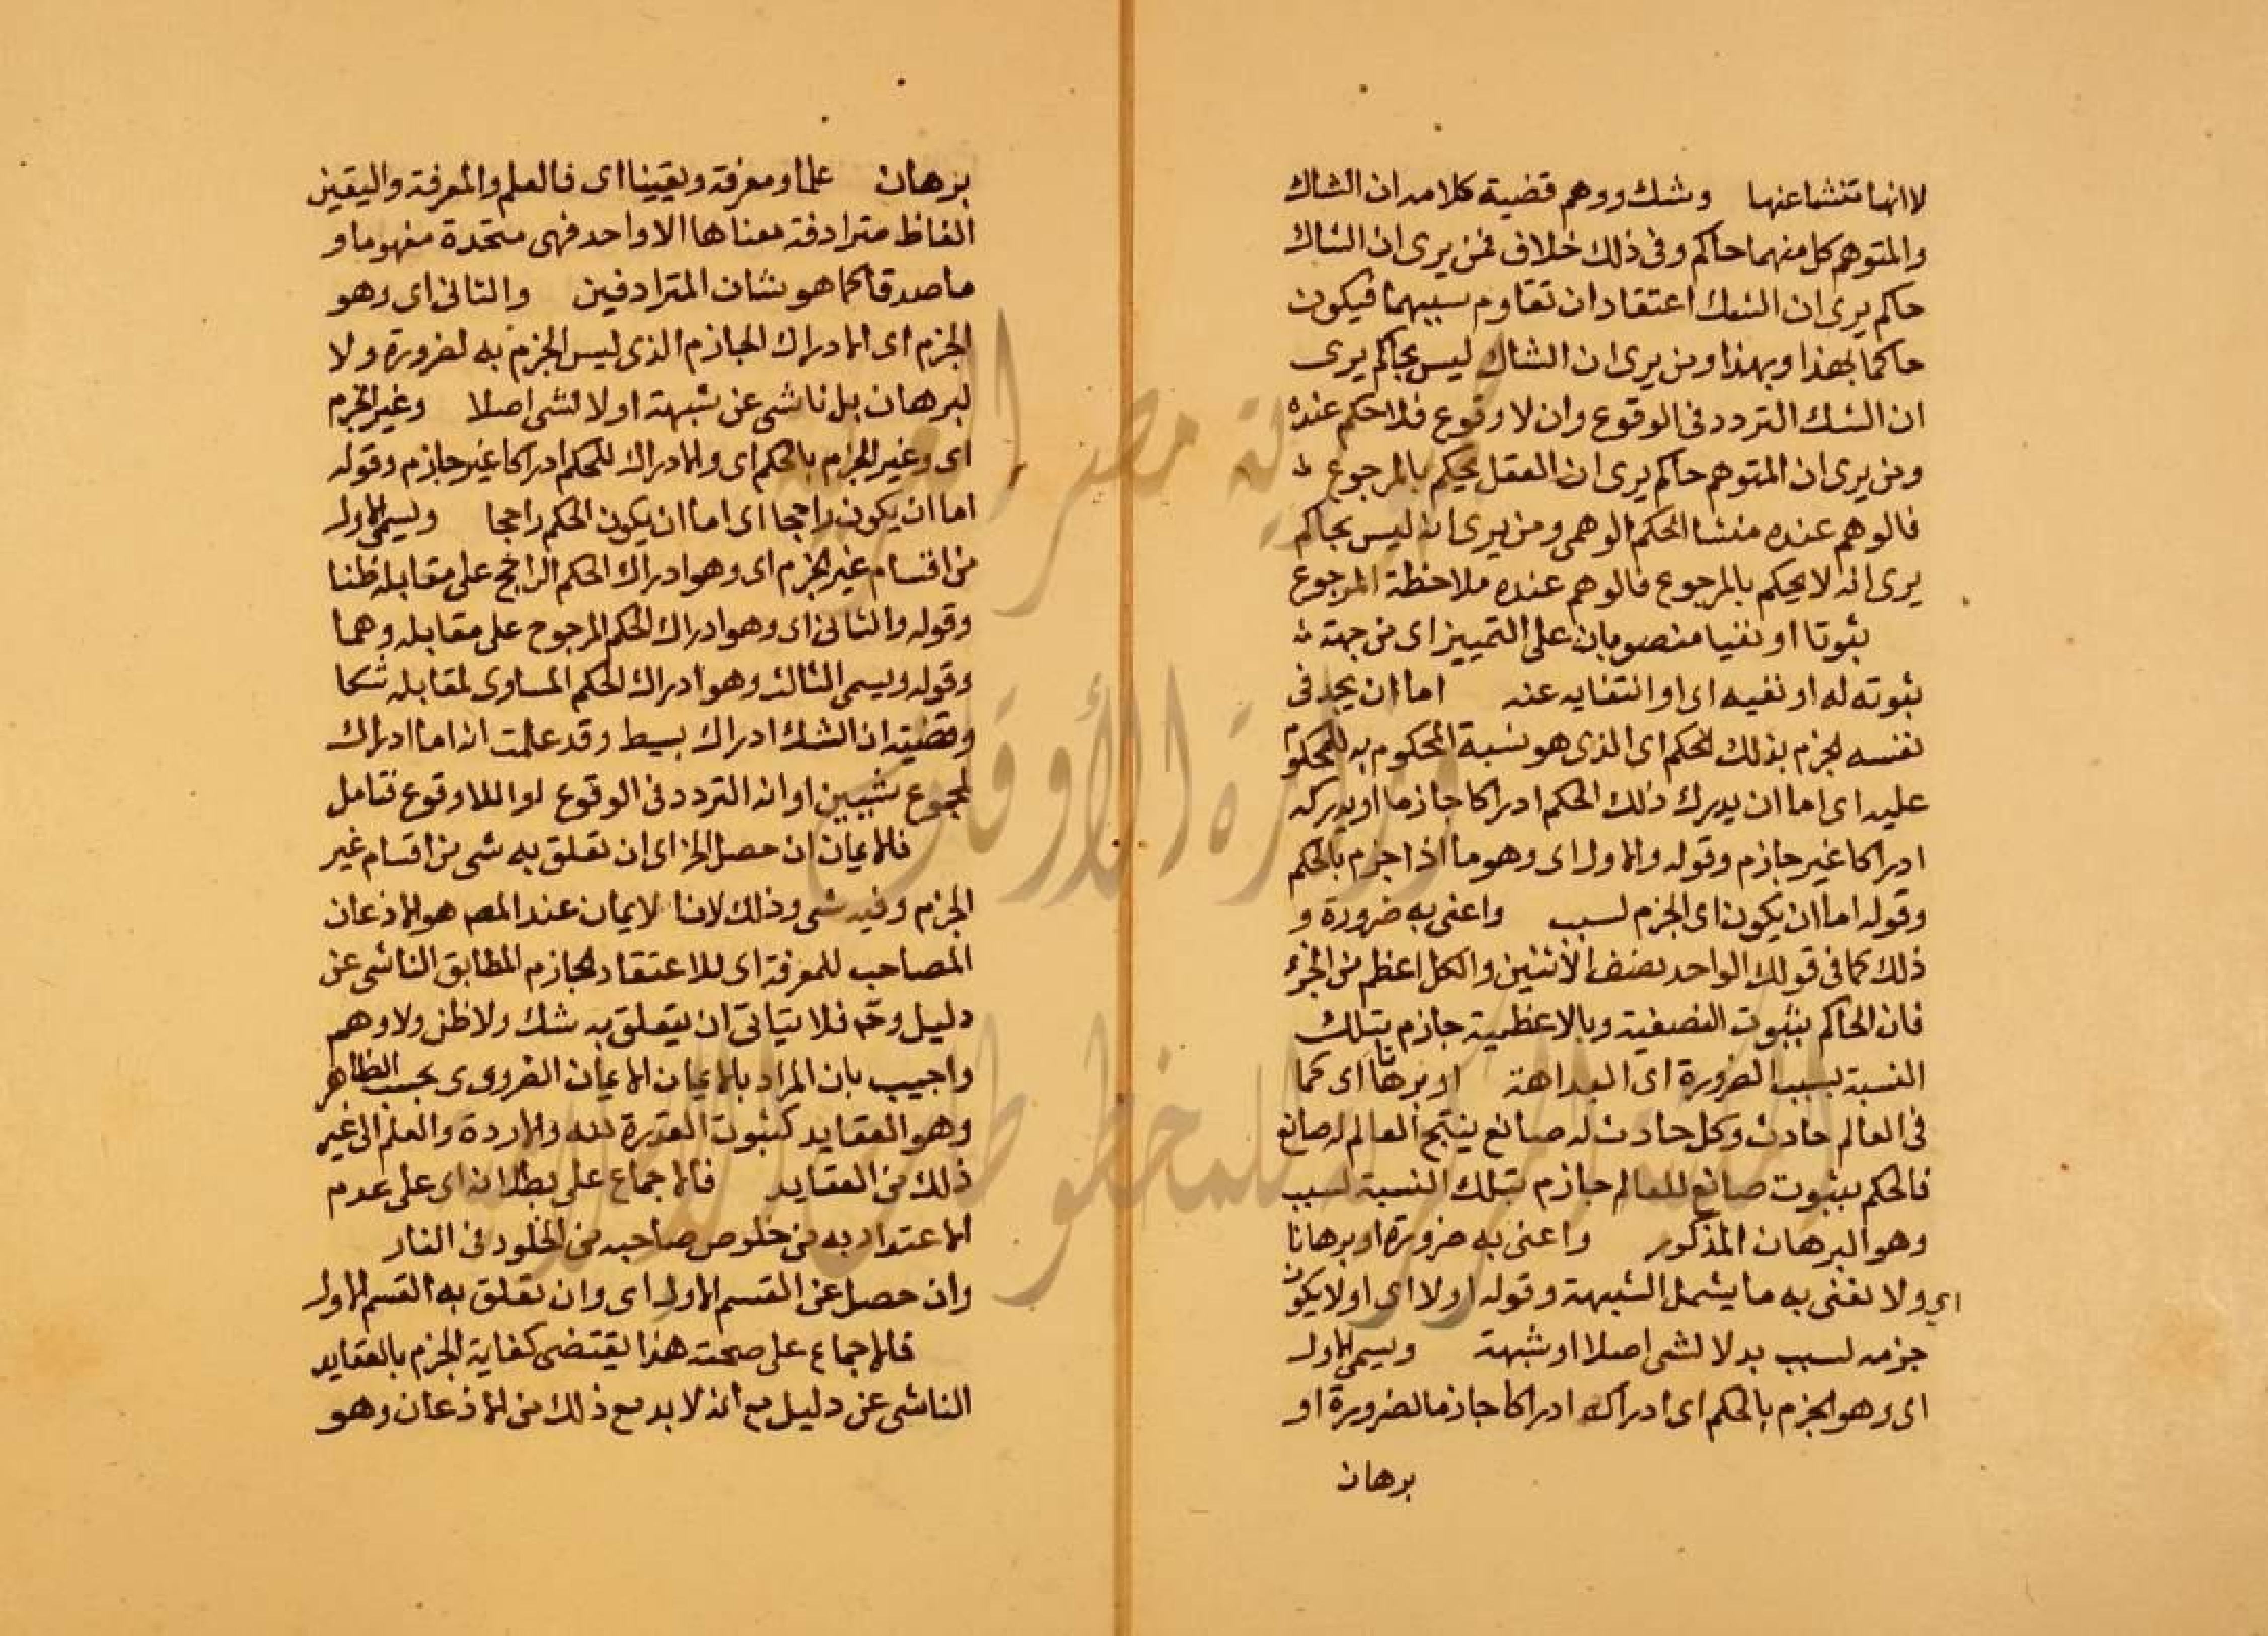 لا انها تنشا عنها وشك ووهم قضية كلامه ان الشاك
والمتوهم كل منهما حاكم وفى ذلك خلاف فمن يرى ان الشاك
حاكم يرى ان الشك اعتقاد ان تقاوم سببهما فيكون
حاكما بهذا وبهذا ومن يرى ان الشاك ليس بحاكم يرى
ان الشك التردد فى الوقوع وان لا وقوع فلا حكم عنده
ومن يرى ان المتوهم حاكم يرى ان العقل يحكم بالمرجوح
فالوهم عنده منشا الحكم الوهمى ومن يرى انه ليس بحاكم
يرى انه لا يحكم بالمرجوع فالوهم عنده ملاحظة المرجوع
ثبوتا او نفيا منصوبان على التمييز اى من جهة
ثبوته له او نفيه اى او انتفايه عنه اما ان يجد فى
نفسه لجزم بذلك الحكم اى الذى هو نسبة المحكوم به للمحكوم
عليه اى اما ان يدرك ذلك الحكم ادراكا جازما او يدركه
ادراكا غير جازم وقوله والاول اى وهو ما اذا جزم بالحكم
وقوله اما ان يكون اى الجزم لسبب واعنى به ضرورة و
ذلك كما فى قولك الواحد نصف الاثنين والكل اعظم من الجزء
فان الحاكم بثبوت النصفية وبالاعظمية جازم بتلك
النسبة بسبب الضرورة اى البداهة او برهانا اى كما
فى العالم حادث وكل حادث له صانع ينتج العالم له صانع
فالحكم بثبوت صانع للعالم جازم بتلك النسبة لسبب
وهو البرهان المذكور واعنى به ضرورة او برهانا
اى ولا نعنى به ما يشمل الشبهة وقوله اولا اى او لا يكون
جزمه لسبب بد لا لشى اصلا او شبهة ويسمى الاول
اى وهو الجزم بالحكم اى ادراك ادراكا جازما لضرورة او
برهان
برهان علما ومعرفة ويقينا اى فالعلم والمعرفة واليقين
الفاظ مترادفة معناها الا واحد فهى متحدة مفهوما و
ماصدقا كما هو شان المترادفين والثانى اى وهو
الجزم اى الادراك الجازم الذى ليس الجزم به لضرورة ولا
لبرهان بل ناشى عن شبهة او لا لشى اصلا وغير الجزم
اى وغير الجزم بالحكم اى والادراك للحكم ادراكا غير جازم وقوله
اما ان يكون راجحا اى اما ان يكون الحكم راجحا ويسمى الاول
من اقسام غير الجزم اى وهو ادراك الحكم الراجح على مقابله ظنا
وقوله والثانى اى وهو ادراك الحكم المرجوح على مقابله وهما
وقوله ويسمى الثالث وهو ادراك الحكم المساوى لمقابله شكا
وقضيته ان الشك ادراك بسيط وقد علمت انه اما ادراك
لمجموع شيبين او انه التردد فى الوقوع او اللاوقوع فتامل
فالايمان ان حصل الخ اى ان تعلق به شى من اقسام غير
الجزم وفيه شى وذلك لانا لايمان عند المصم هو الاذعان
المصاحب للمعرفة اى للاعتقاد الجازم المطابق الناشى عن
دليل وح فلا يتاتى ان يتعلق به شك ولا ظن ولا وهم
واجيب بان المراد بالايمان الايمان الضرورى بحسب الظاهر
وهو العقايد كثبوت القدرة لله والاردة والعلم الى غير
ذلك من العقايد فالاجماع على بطلانه اى على عدم
الاعتداد به من خلوص صاحبه من الخلود فى النار
وان حصل عن القسم الاول اى وان تعلق به القسم الاول
فالاجماع على صحته هذا يقتضى كفاية الجزم بالعقايد
الناشى عن دليل مع انه لا بد مع ذلك من الاذعان وهو